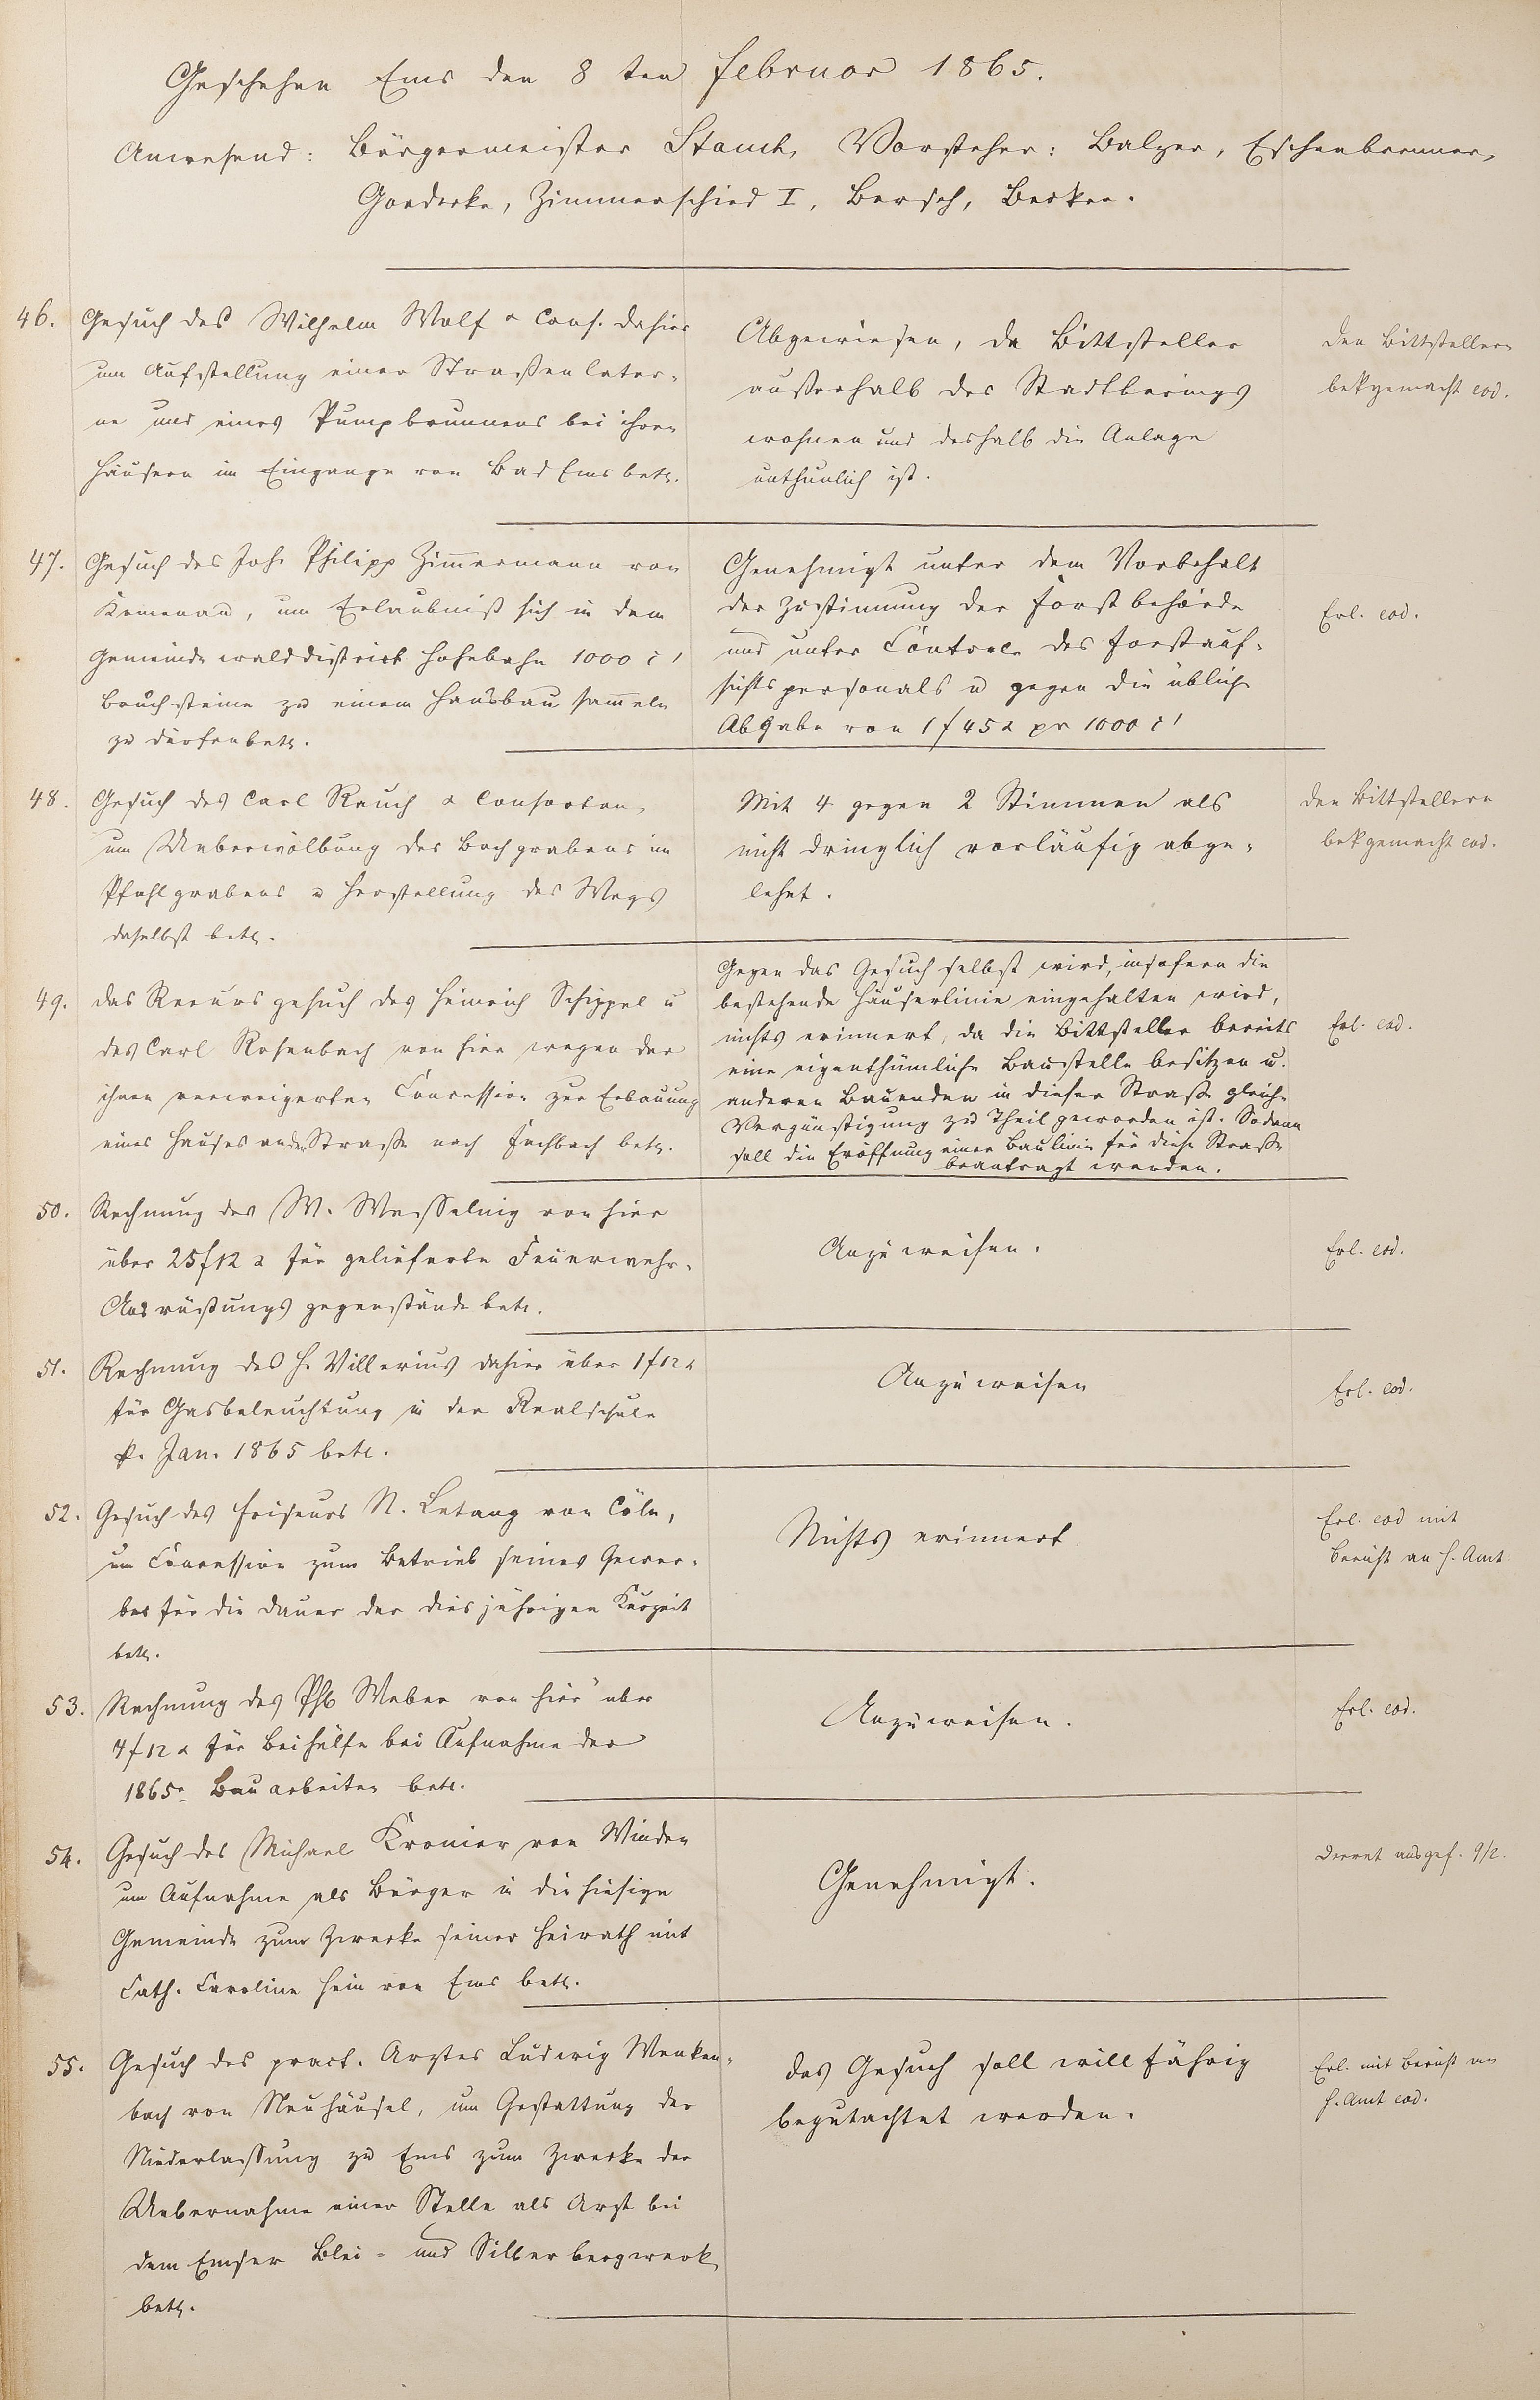 Geschehen Ems den 8 ten Februar 1865.
Anwesend: Bürgermeister Stauch, Vorsteher: Balzer, Eschenbrenner,
Goedecke, Zimmerschied I, Bersch, Becker.
46. Gesuch des Wilhelm Wolf & Cons. dahier
um Aufstellung einer Straßenlater-
ne und eines Pumpbrunnens bei ihren
Häusern im Eingange von Bad Ems betr.
Abgewiesen, da Bittsteller
außerhalb des Stadtberings
wohnen und deshalb die Anlage
unthunlich ist.
den Bittstellern
bekgemacht eod.
47. Gesuch des Joh. Philipp Zimmermann von
Kemenau, um Erlaubniß sich in dem
Gemeindewalddistrict Hohebahn 1000 c'
Bruchsteine zu einem Hausbau sammeln
zu dürfen betr.
Genehmigt unter dem Vorbehalt
der Zustimmung der Forstbehörde
und unter Controle des Forstauf-
sichtspersonals u gegen die übliche
Abgabe von 1 f 45 x pr 1000 c'
Erl. eod.
48. Gesuch des Carl Rauch & Consorten
um Ueberwölbung des Bachgrabens im
Pfahlgrabens u Herstellung des Wegs
daselbst betr.
Mit 4 gegen 2 Stimmen als
nicht dringlich vorläufig abge-
lehnt.
den Bittstellern
bekgemacht eod.
49. Das Recursgesuch des Heinrich Schippel u
des Carl Rosenbach von hier wegen der
ihnen verweigerten Concession zur Erbauung
eines Hauses an der Straße nach Fachbach betr.
Gegen das Gesuch selbst wird, insofern die
bestehende Häuserlinie eingehalten wird,
nichts erinnert, da die Bittsteller bereits
eine eigenthümliche Baustelle besitzen u.
anderen Bauenden in dieser Straße gleiche
Vergünstigung zu Theil geworden ist. Sodann
soll die Eröffnung einer Baulinie für diese Straße
beantragt werden.
Erl. eod.
50. Rechnung des W. Wesselnig von hier
über 25 f 12 x für gelieferte Feuerwehr-
Ausrüstungsgegenstände betr.
Anzuweisen.
Erl. eod.
51. Rechnung des H. Villerius dahier über 1 f 12 x
für Gasbeleuchtung in der Realschule
p. Jan. 1865 betr.
Anzuweisen
Erl. eod.
52. Gesuch des Friseurs N. Letang von Cöln,
um Concession zum Betrieb seines Gewer-
bes für die Dauer der diesjährigen Kurzeit
betr.
Nichts erinnert.
Erl. eod mit
Bericht an H. Amt
53. Rechnung des Phil Weber von hier über
4 f 12 x für Beihülfe bei Aufnahme der
1865r Bauarbeiten betr.
Anzuweisen.
Erl. eod.
54. Gesuch des Michael Kronier von Winden
um Aufnahme als Bürger in die hiesige
Gemeinde zum Zwecke seiner Heirath mit
Cath. Caroline Hein von Ems betr.
Genehmigt.
Decret ausgef. 9/2.
55. Gesuch des pract. Arztes Ludwig Wenken-
bach von Neuhäusel, um Gestattung der
Niederlassung zu Ems zum Zwecke der
Uebernahme einer Stelle als Arzt bei
dem Emser Blei- und Silberbergwerk
betr.
Das Gesuch soll willfährig
begutachtet werden.
Erl. mit Bericht an
H. Amt eod.